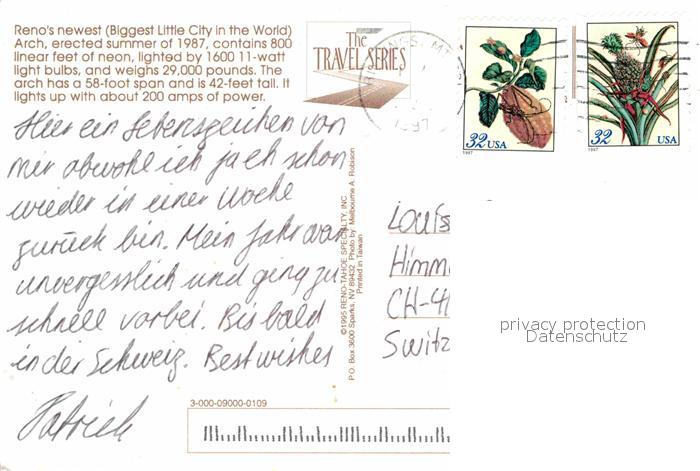 Reno's newest (Biggest Little City in the World)
Arch, erected summer of 1987, contains 800
linear feet of neon, lighted by 1600 11-watt
light bulbs, and weighs 29,000 pounds. The
arch has a 58-foot span and is 42-feet tall. It
lights up with about 200 amps of power.
The
TRAVEL SERIES
32 USA
1997
32 USA
1997
Hier ein Lebenszeichen von
mir obwohl ich ja eh schon
wieder in einer Woche
zurück bin. Mein Jahr war
unvergesslich und ging zu
schnell vorbei. Bis bald
in der Schweiz. Best wishes
Patrick
©1995 RENO-TAHOE SPECIALTY, INC.
P.O. Box 3600 Sparks, NV 89432 Photo by Melbourne A. Robison
Printed in Taiwan
Louis
Himm
CH-4
Switz
privacy protection
Datenschutz
3-000-09000-0109